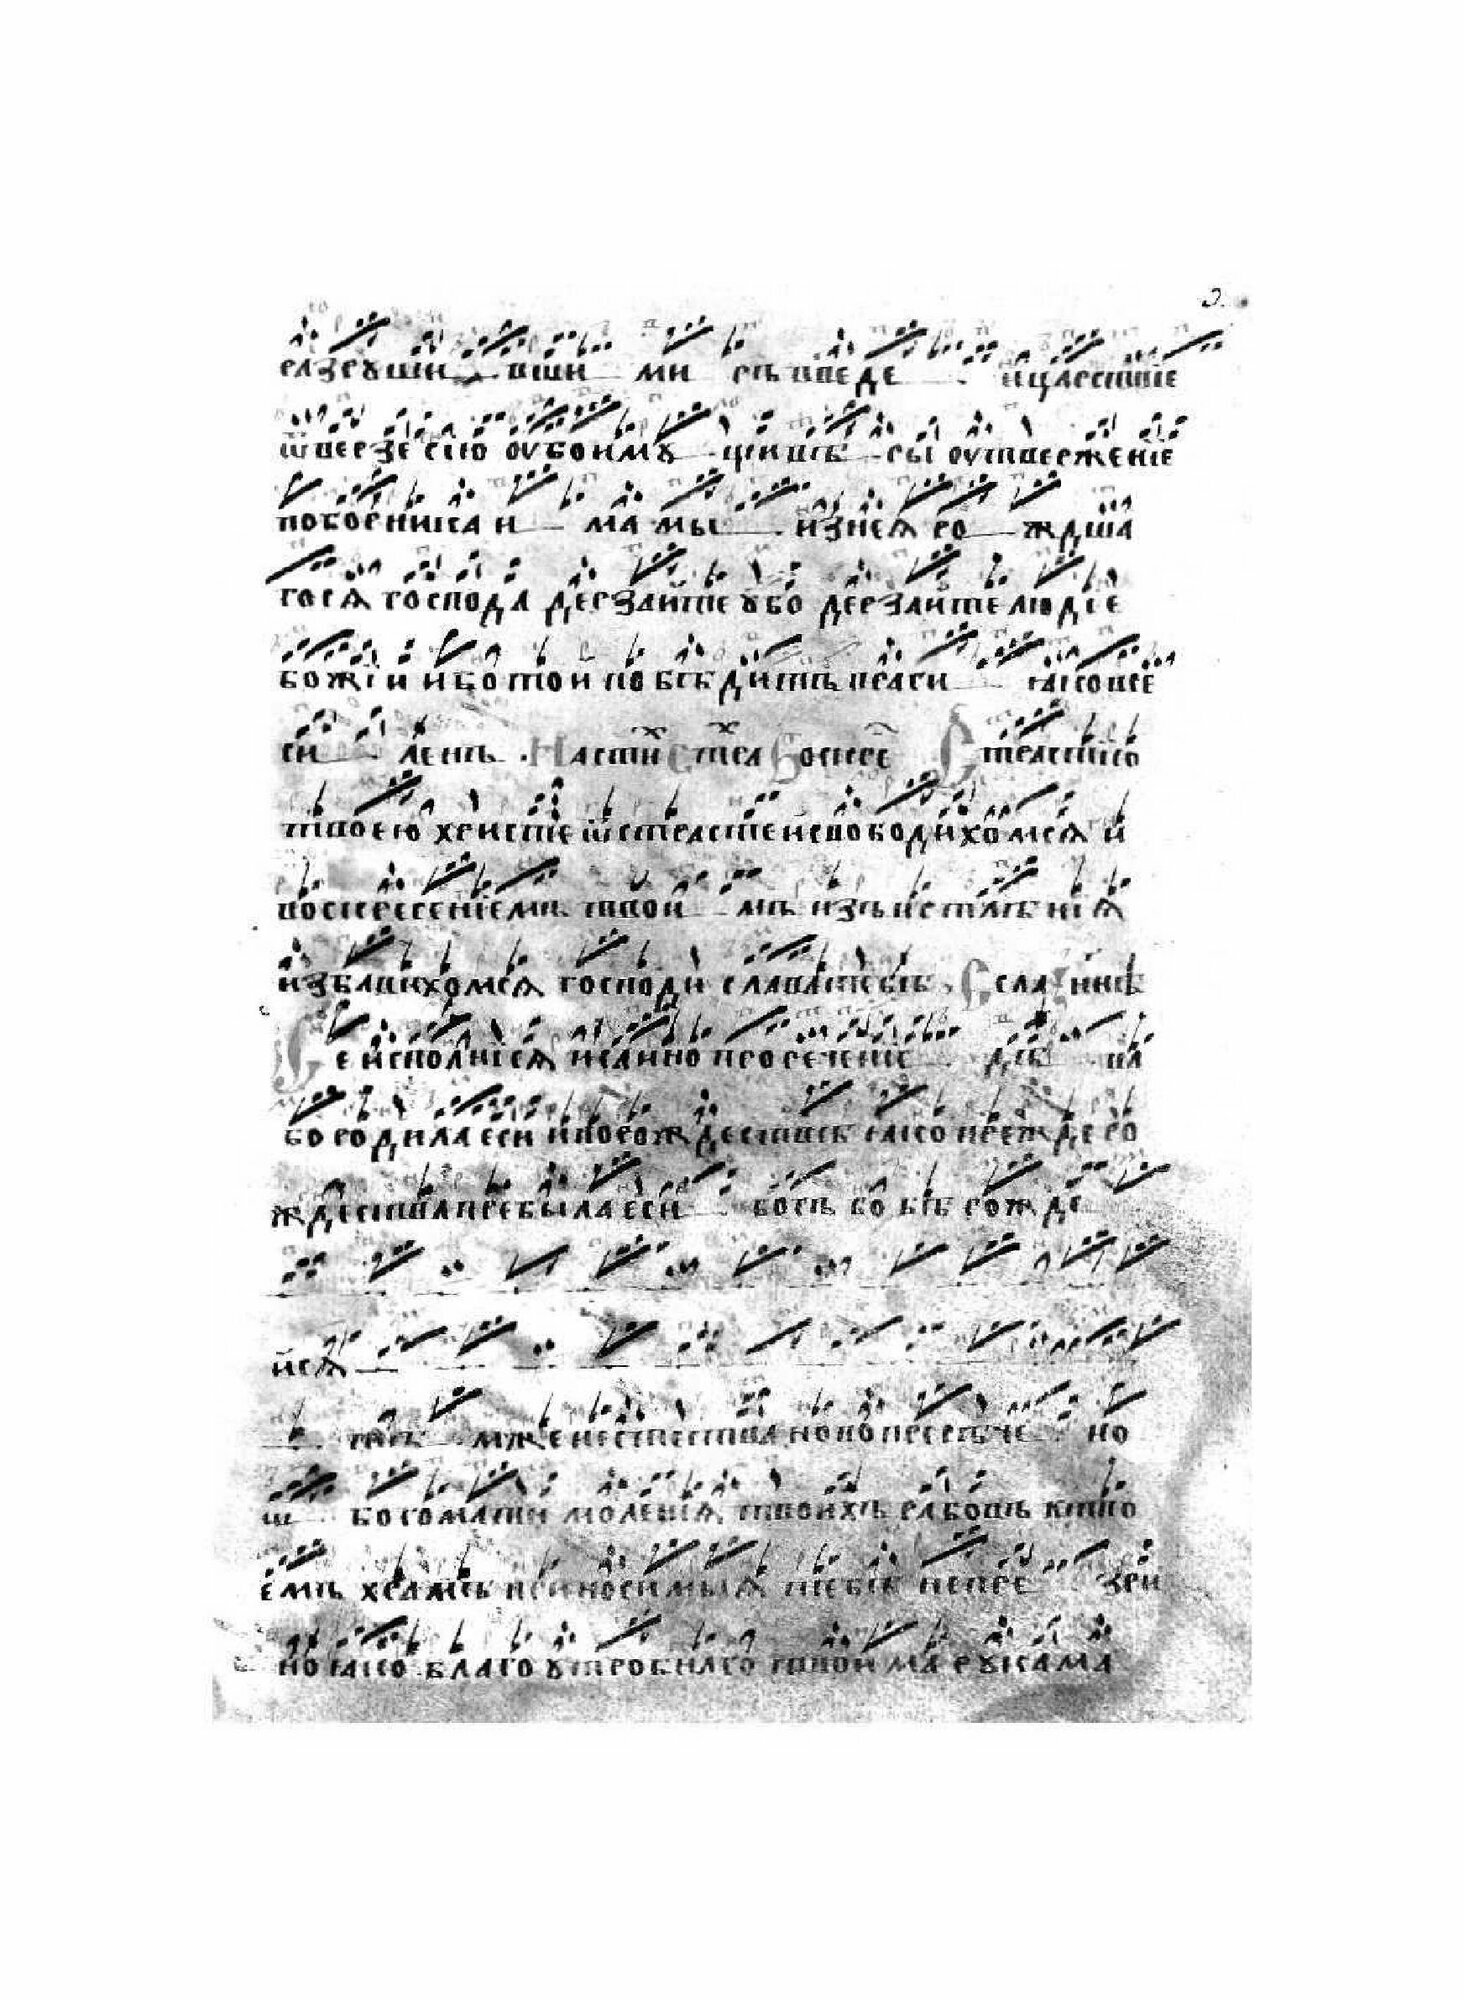 разрꙋши вши ми ръ введе и царствїе
ѿверзе сїю оубо имꙋ щи вѣ ры оутвержение
поборника и ма мы из нея ро ждша
гося господа дерзайте ꙋбо дерзайте людїе
божїи ибо той победитъ враги яко все
си ленъ На сти стра Воскре Страстїю
твоею христе ѿ страстей свободихомся и
воскресенїемъ твои мъ изъ истлѣнїя
избавихомся господи слава тебѣ Сла ннѣ
Се исполнися исаино проречение два
бо родила еси и по рожествѣ яко прежде ро
ждества пребыла еси богъ бо бѣ рожде
йся
тѣ мже и естества ново пресѣче но
ѡ богомати моленїя твоихъ рабовъ в тво
емъ храмѣ приносимыя тебѣ не пре зри
но яко благоꙋтробнаго твоима рꙋкама